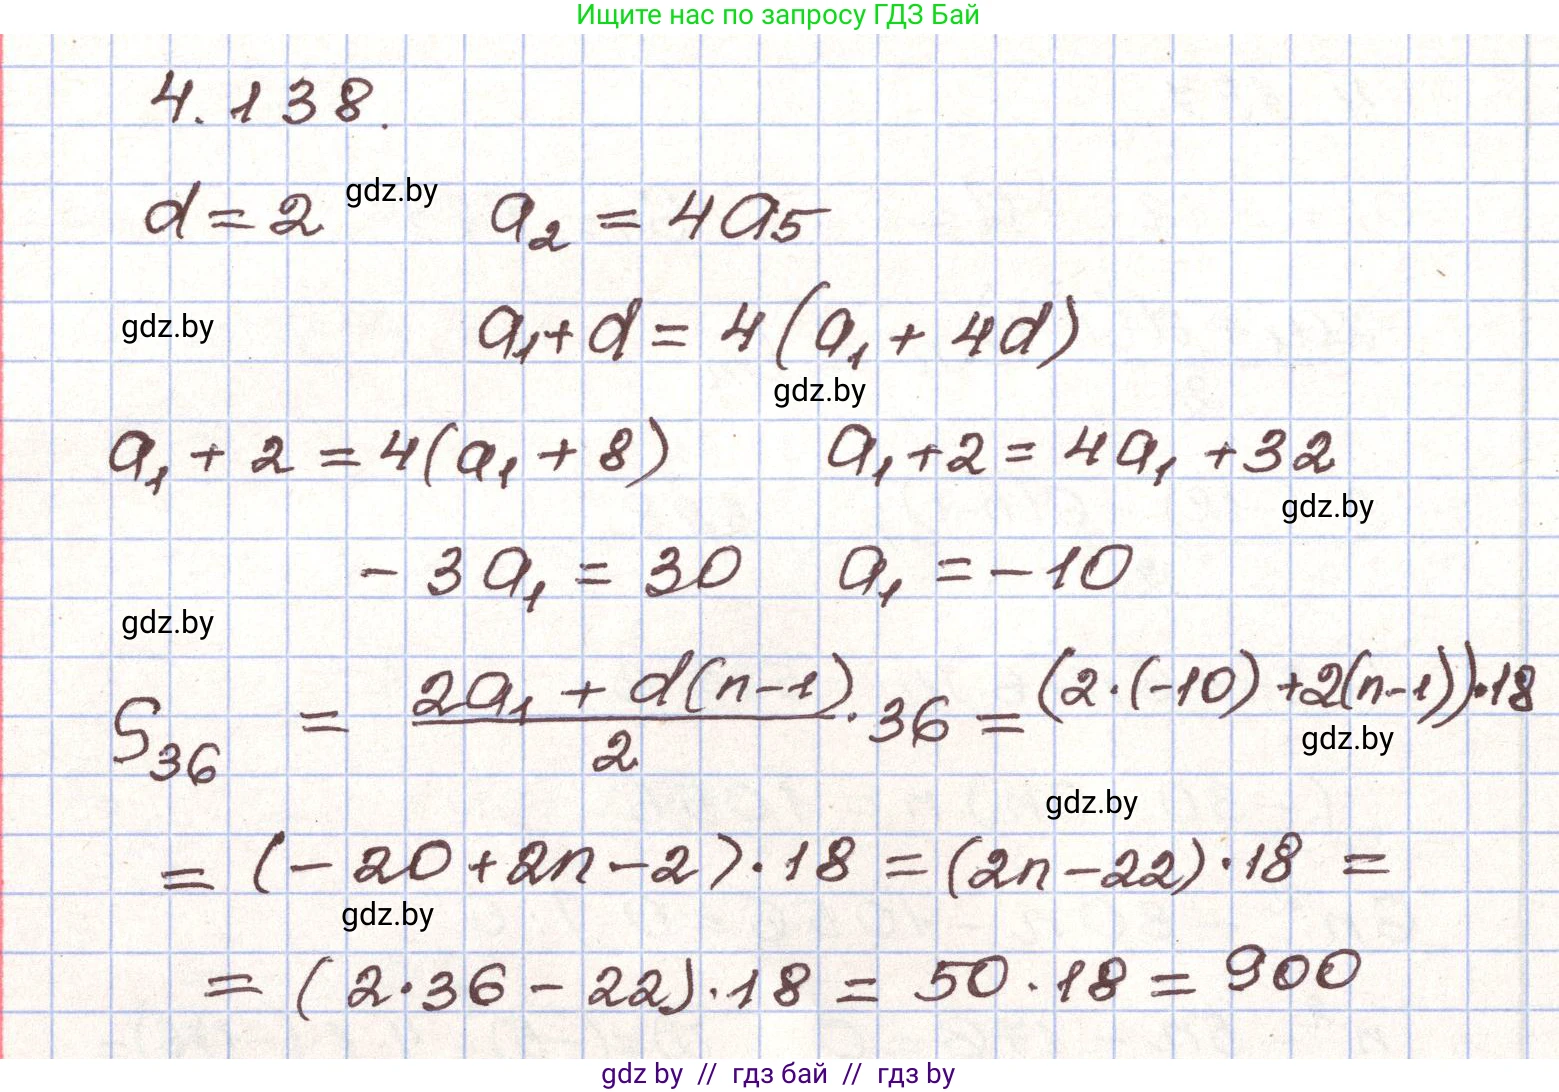 Ищите нас по запросу ГДЗ Бай
4.138.
d = 2 gdz.by a₂ = 4a₅
gdz.by a₁ + d = 4(a₁ + 4d)
gdz.by
a₁ + 2 = 4(a₁ + 8) a₁ + 2 = 4a₁ + 32
gdz.by
- 3a₁ = 30 a₁ = -10
gdz.by
S₃₆ = (2a₁ + d(n-1))/2 · 36 = (2·(-10) + 2(n-1))·18
gdz.by
gdz.by
= (-20 + 2n - 2)·18 = (2n - 22)·18 =
gdz.by
= (2·36 - 22)·18 = 50·18 = 900
gdz by // гдз бай // гдз by